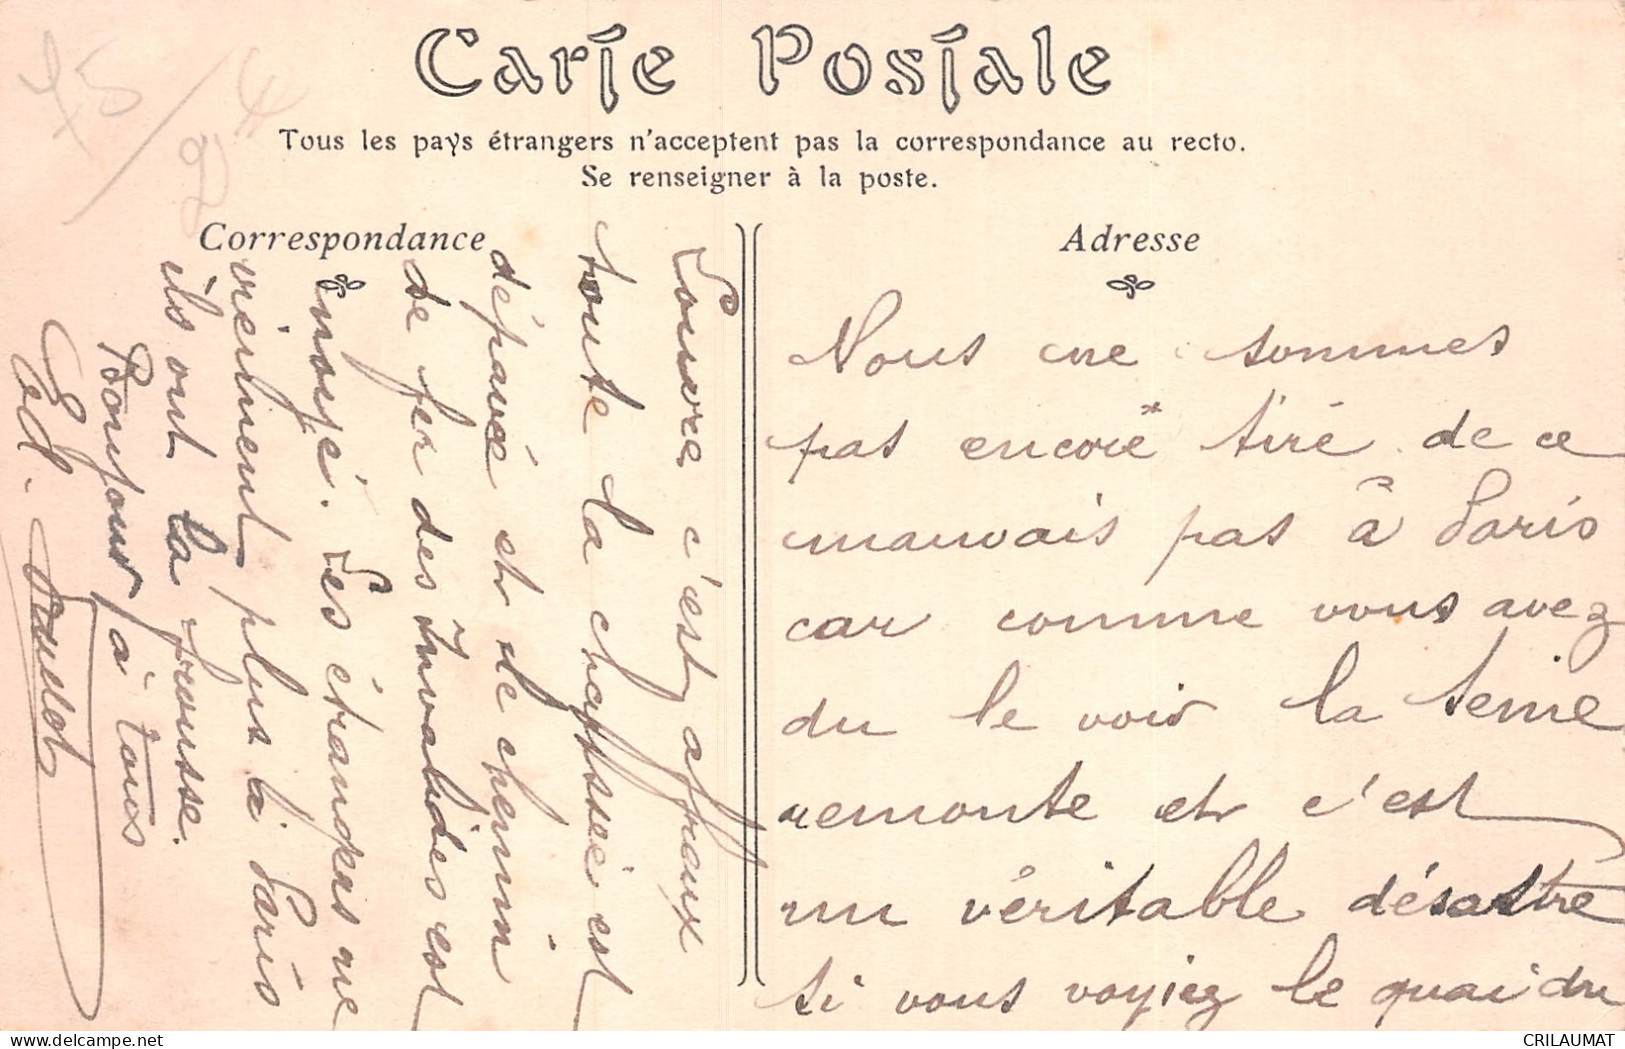 75/24
Carte Postale
Tous les pays étrangers n'acceptent pas la correspondance au recto.
Se renseigner à la poste.
Correspondance
Adresse
Nous ne sommes
pas encore tiré de ce
mauvais pas à Paris
car comme vous avez
du le voir la Seine
remonte et c'est
un véritable désastre
si vous voyiez le quai du
Louvre c'est affreux
toute la chaussée est
dépavée et le chemin
de fer des Invalides est
innondé. Les étrangers ne
viennent plus à Paris
ils ont la frousse.
Bonjour à tous
Ed.
CRILAUMAT